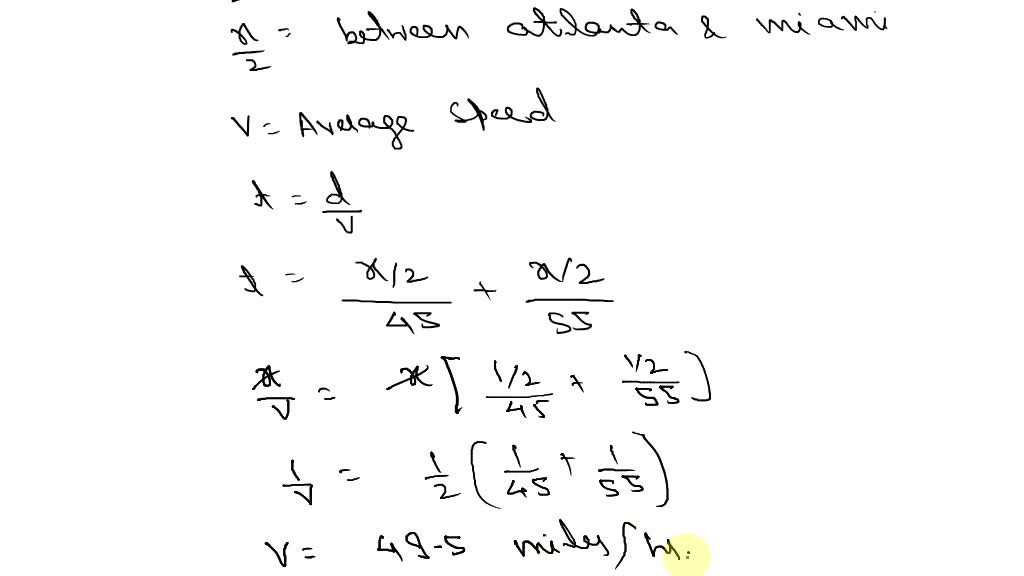 x/2 = between atlanta & miami
V = Average speed
t = d/V
t = x/2/45 + x/2/55
x/V = x [ 1/2/45 + 1/2/55 ]
1/V = 1/2 ( 1/45 + 1/55 )
V = 49.5 miles/hr.